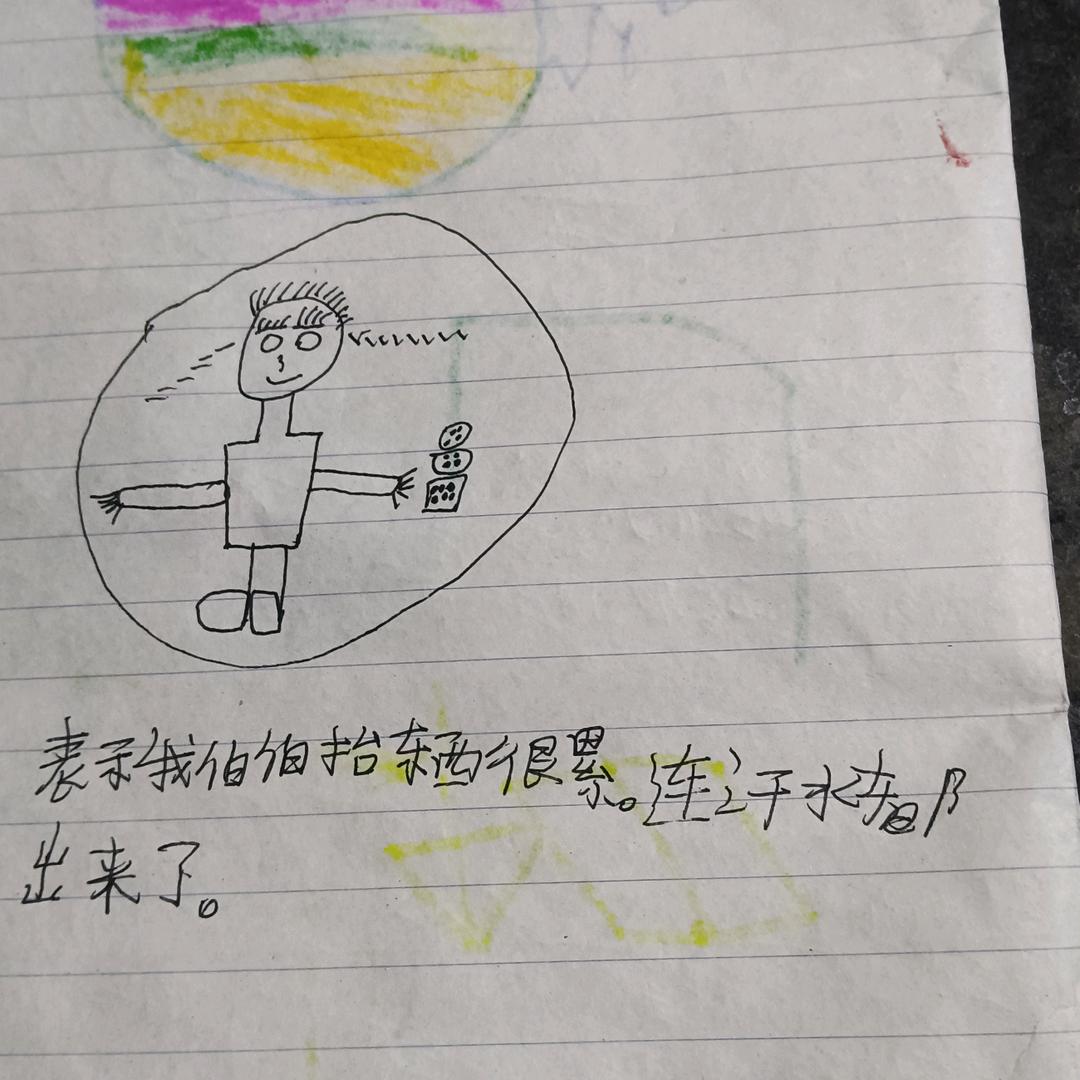 表示我伯伯抬东西很累。连汗水都
出来了。